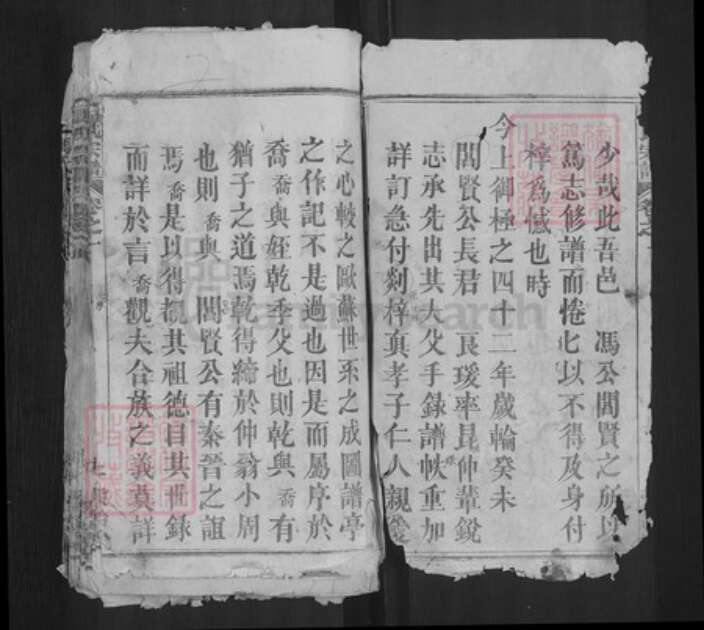 少哉此吾邑　馮公閶賢之所以
篤志修譜而惓匕以不得及身付
梓為憾也時
今上御極之四十二年歲輪癸未
閶賢公長君　瑗率昆仲輩銳
志承先出其大父手錄譜帙重加
詳訂急付剞梓真孝子仁人親愛
之心較之歐蘇世系之成圖譜亭
之作記不是過也因是而屬序於
喬喬與姪乾季父也則乾與喬有
猶子之道焉乾得締於仲翁小周
也則喬與　閶賢公有秦晉之誼
焉喬是以得覩其祖德目其世錄
而詳於言喬觀夫合族之義莫詳
familysearch